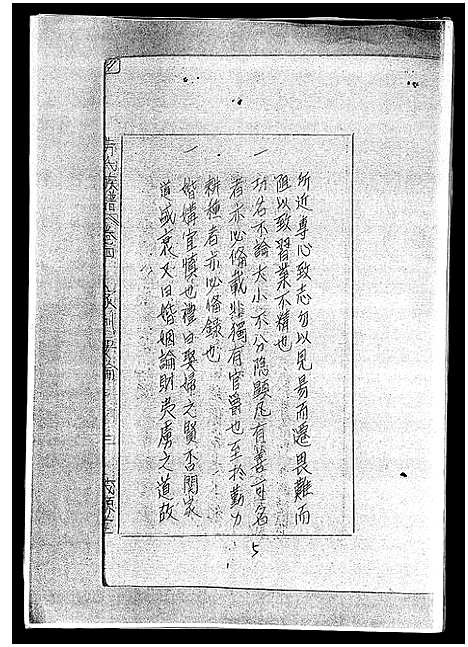 所近專心致志勿以見易而遷畏難而
阻以致習業不精也
一 功名不論大小不分隐顕凡有善可名
者亦必條載非獨有官爵也至於勤力
耕種者亦必條錄也
一 婚媾宜慎也禮曰娶婦之賢否関家
道盛衰又曰婚姻論財夷虜之道故
氏族譜 卷四
三
5